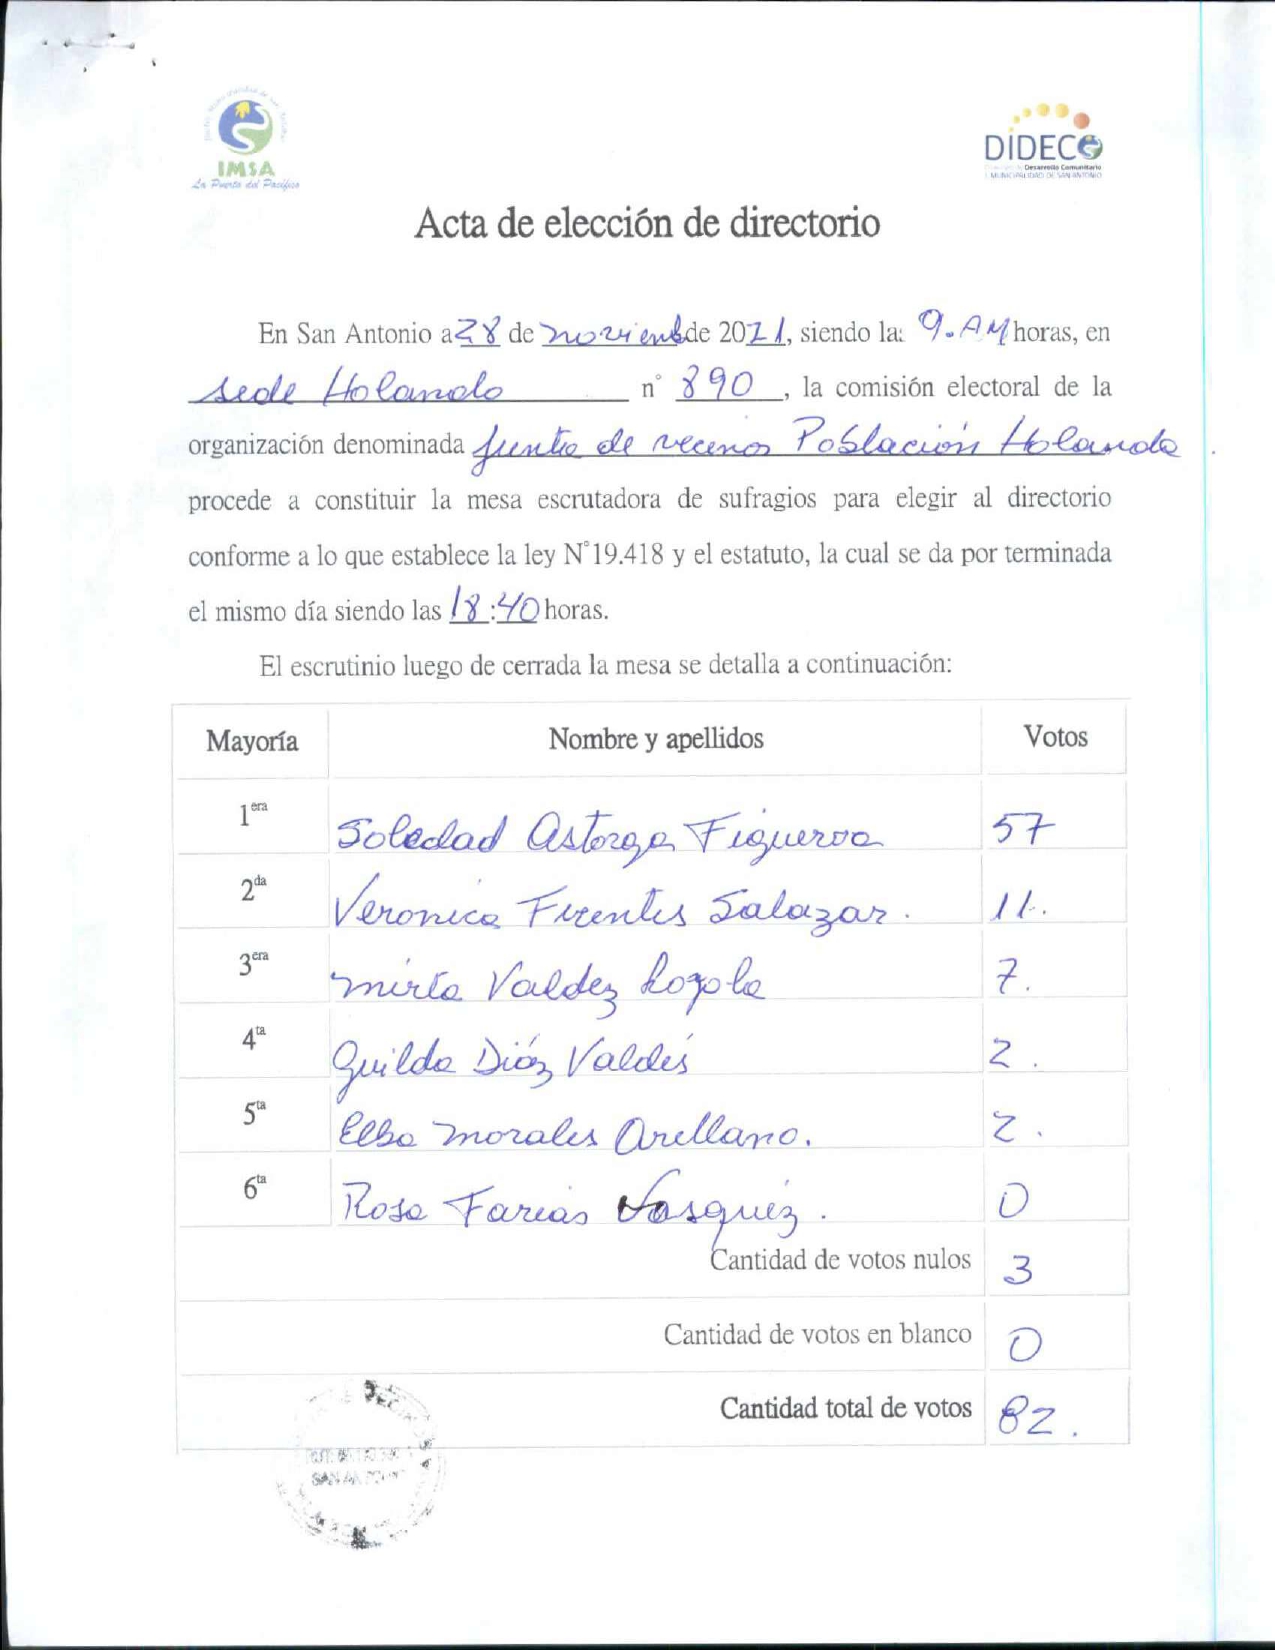 IMSA
La Puerta del Pacífico
DIDECO
Desarrollo Comunitario
I. MUNICIPALIDAD DE SAN ANTONIO
Acta de elección de directorio
En San Antonio a 28 de noviembre 2021, siendo la: 9.AM horas, en
sede Holanda n° 890, la comisión electoral de la
organización denominada junta de vecinos Población Holanda.
procede a constituir la mesa escrutadora de sufragios para elegir al directorio
conforme a lo que establece la ley N°19.418 y el estatuto, la cual se da por terminada
el mismo día siendo las 18:40 horas.
El escrutinio luego de cerrada la mesa se detalla a continuación:
Mayoría Nombre y apellidos Votos
1era Soledad Astorga Figueroa 57
2da Veronica Fuentes Salazar. 11.
3era Mirta Valdez Loyola 7.
4ta Guilda Diáz Valdés 2.
5ta Elba Morales Arellano. 2.
6ta Rosa Farias Vasquéz. 0
Cantidad de votos nulos 3
Cantidad de votos en blanco 0
Cantidad total de votos 82.
SAN ANTONIO